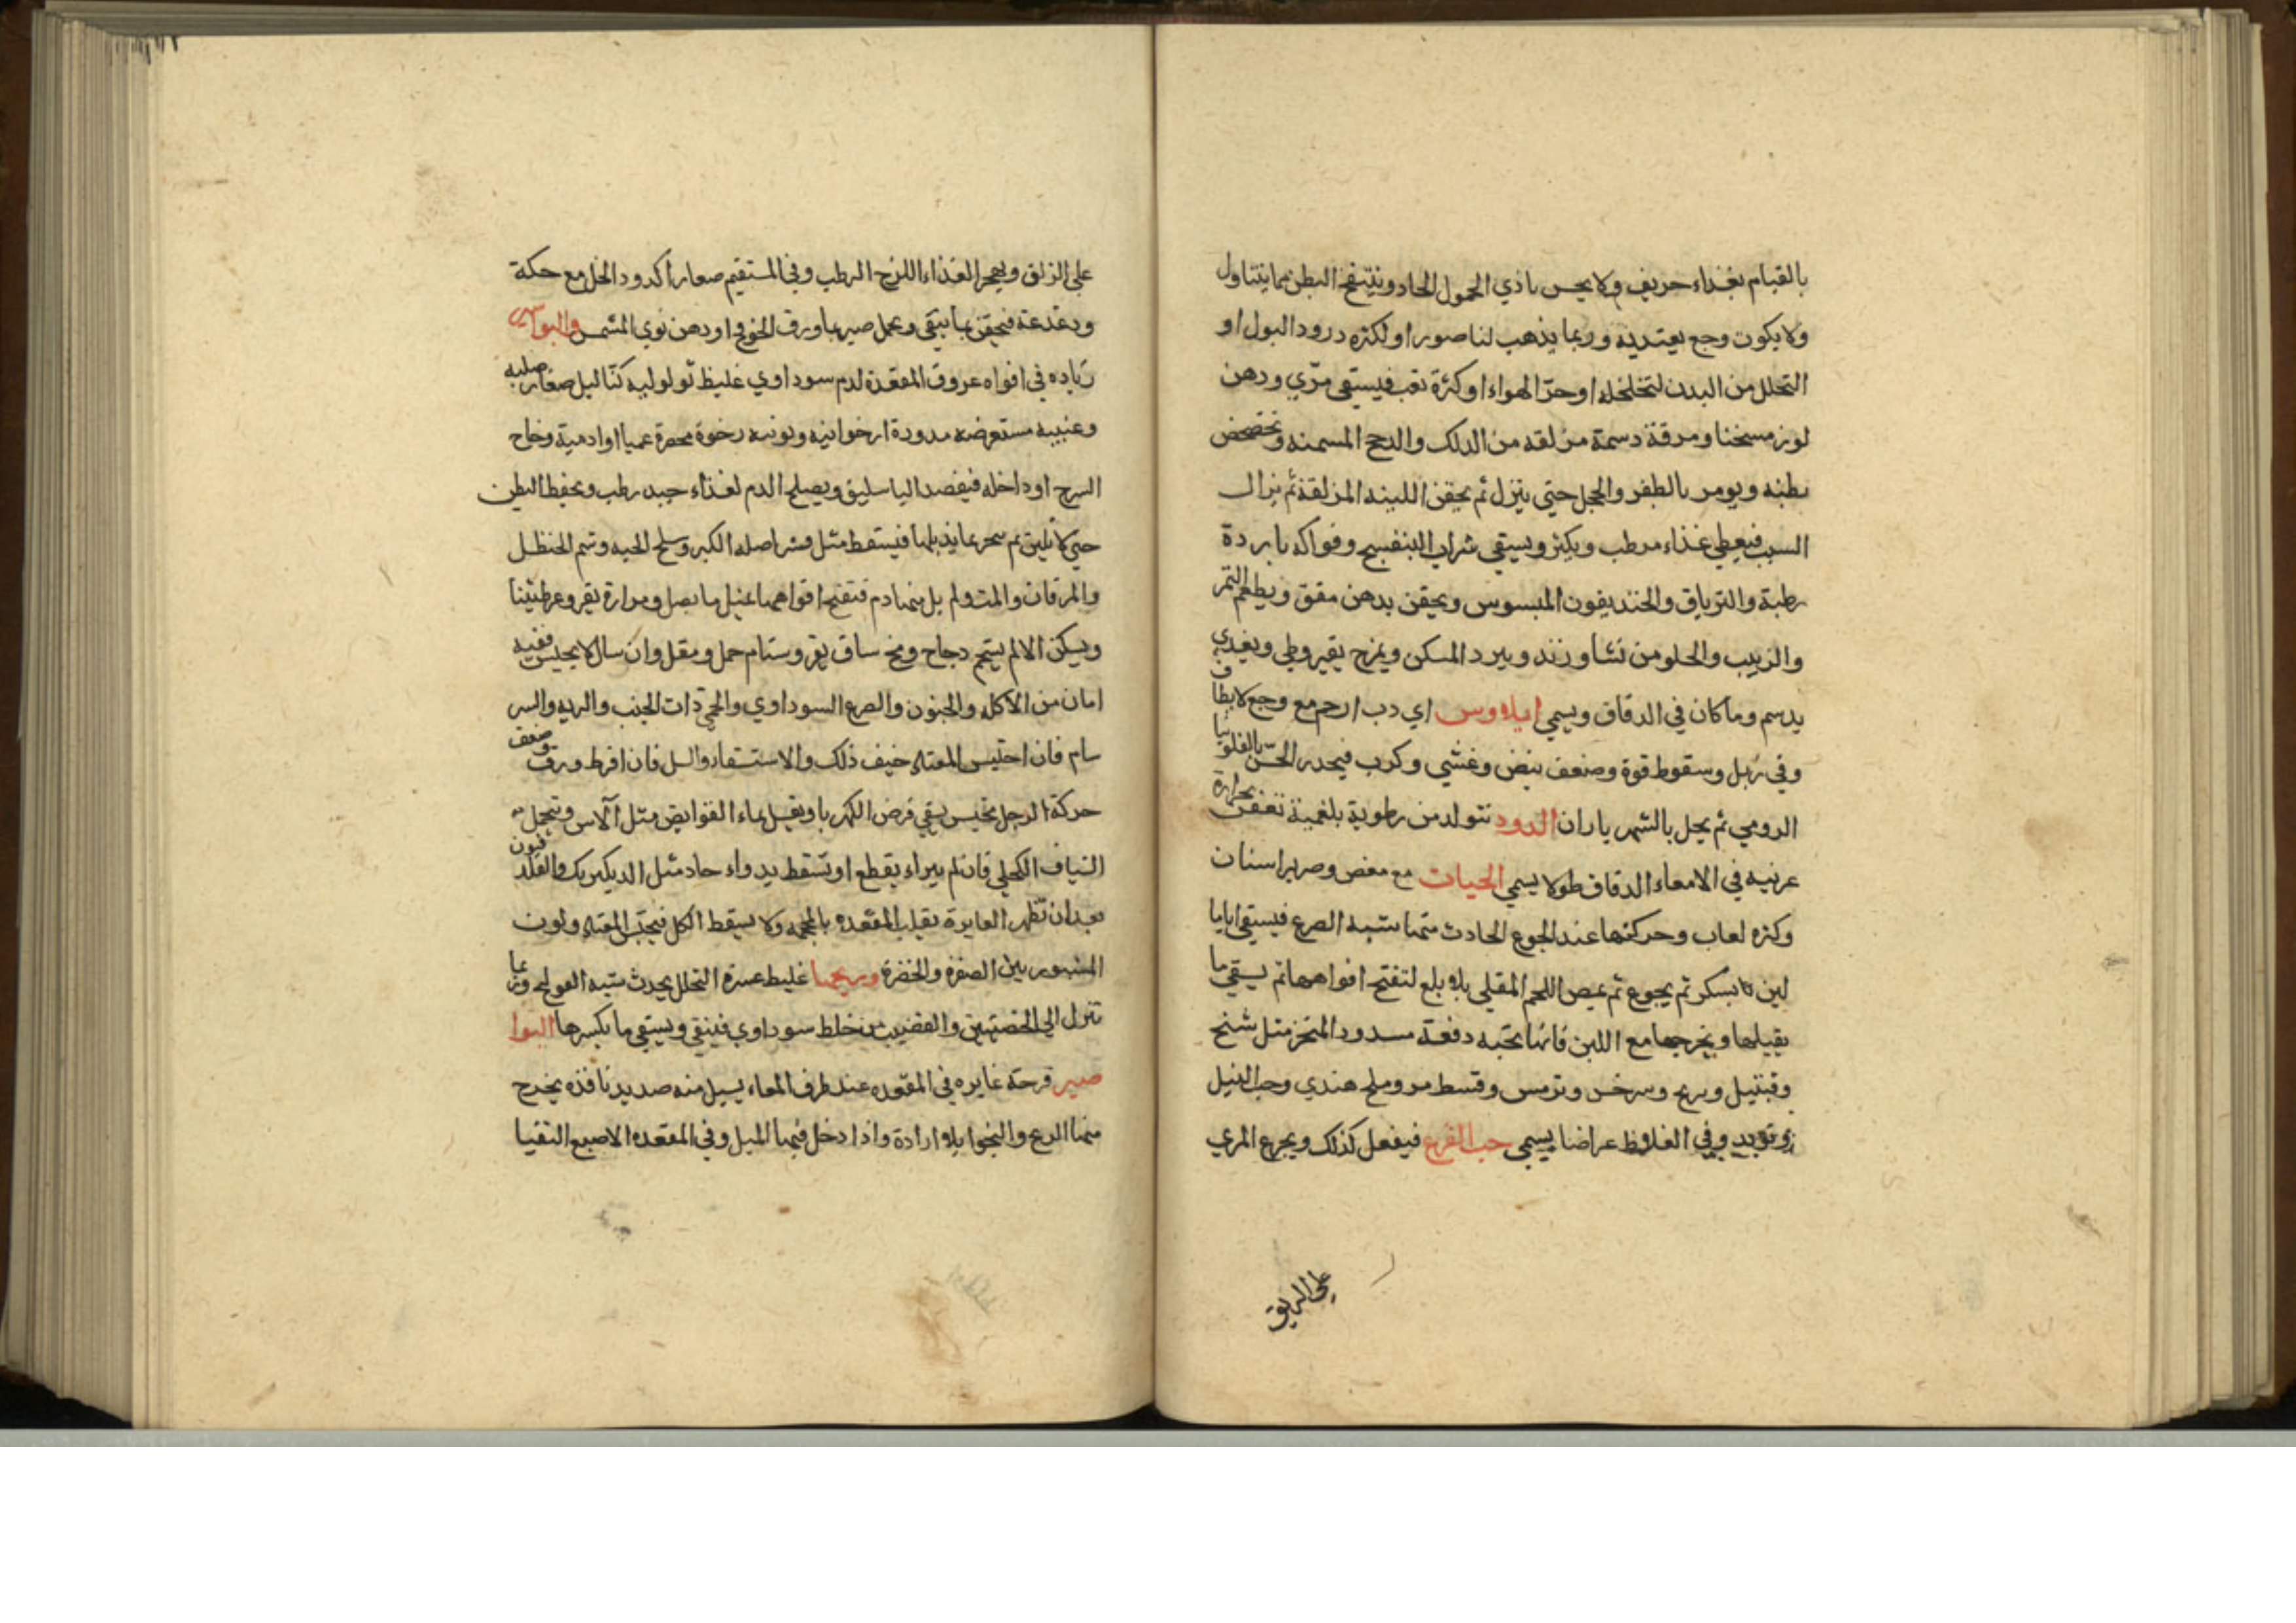 بالقيام بغذاء حريف ولا يحس باذي الحمول الحاد وينتفخ البطن مما يتناول
ولا يكون وجع يعتد به وربما يذهب لناصور او لكثره درود البول او
التحلل من البدن لتخلخله او حرّ الهواء او كثرة تعب فيسقى مرّي ودهن
لوز مسخنا ومرقة دسمة مزلقه من الديك والدجج المسمنه وتخضخض
بطنه ويومر بالطفر والحجل حتى ينزل ثم يحقن اللينه المزلقة ثم يزال
السبب فيعطي غذاء مرطب ويكثر ويسقى شراب البنفسج وفواكه باردة
رطبة والترياق والخنديقون المبسوس ويحقن بدهن مفتق ويطعم التمر
والزبيب والحلو من نشا وزند ويبرد المسكن ويمزج بقيروطي ويغدي
بدسم وما كان في الدقاق ويسمي ايلاوس اي رب ارحم مع وجع لا يطاق
وفي زبل وسقوط قوة وضعف نبض وغشي وكرب فيحدر الحسّ بالفلونيا
الرومي ثم يحل بالشهر ياران الدود تتولد من رطوبة بلغمية تعفن بحرارة
غرنيه في الامعاء الدقاق طولا يسمي الحيات مع مغص وصرير اسنان
وكثره لعاب وحركتها عند الجوع الحادث منها شبه الصرع فيسقى اياما
لبن بسكر ثم يجوع ثم يمص اللحم المقلي بلا بلع لتفتح افواهها ثم يسقي ما
يقتلها ويخرجها مع اللبن فانها تحبه دفعة مسدود المنخر مثل شنح
وقنبيل وبرنج وسرخس وترمس وقسط مر وملح هندي وحب النيل
وتربد وفي الغلاظ عراضا يسمي حب القرع فيفعل كذلك ويجرع المري
على الريق
على الريق ويهجر الغذاء اللزج الرطب وفي المستقيم صغارا كدود الخل مع حكة
ودغدغة فيحقن بما ينقي ويحمل صبر بماورق الخوخ او دهن نوي المشمس والبواسير
زياده في افواه عروق المقعدة لدم سوداوي غليظ ثولوليه كثاليل صغار صلبه
وعنبيه مستعرضه مدورة ارخوانيه وتوتيه رخوة محمرة عميا او ادمية وخارج
السرج او داخله فيفصد الباسليق ويصلح الدم لغذاء جيد رطب ويحفظ البطن
حتى لا تلين ثم يبخر بما يذبلها فيسقط مثل قشر اصله الكبر وسلخ الحيه وشحم الحنظل
ويسكن الالم بشحم دجاج ومخ ساق بقر وسنام جمل ومقل وان سال لا يحبس ففيه
امان من الاكله والجنون والصرع السوداوي والحمي ذات الجنب والريه والسر
سام فان احتبس المعتاد خيف ذلك والاستسقا والسل فان افرط ورق وضعف
حركة الرجل يحبس بسقي قرص الكهربا ويغسل بماء القوابض مثل الآس وتحمل
الشياف الكحلي فان لم يبراء يقطع او تسقط بدواء حاد مثل الديك بريك والقلدفيون
بعد ان تظهر الغايرة بقلب المقعده بالمحجمه ولا يسقط الكل فيحتبس المعتاد ولون
المنسور بين الصفرة والخضرة وريحها غليظ عسرة التحلل يحدث شبه القولنج وربما
تنزل الى الخصيتين والقضيب من خلط سوداوي فينقي ويسقي ما يكسرها النوا
صير قرحة غايره في المقعده عند طرف المعاء يسيل منه صديد نافذه يخرج
منها الريح والنجوا بلا ارادة واذا دخل فيها الميل وفي المقعده الاصبع التقيا